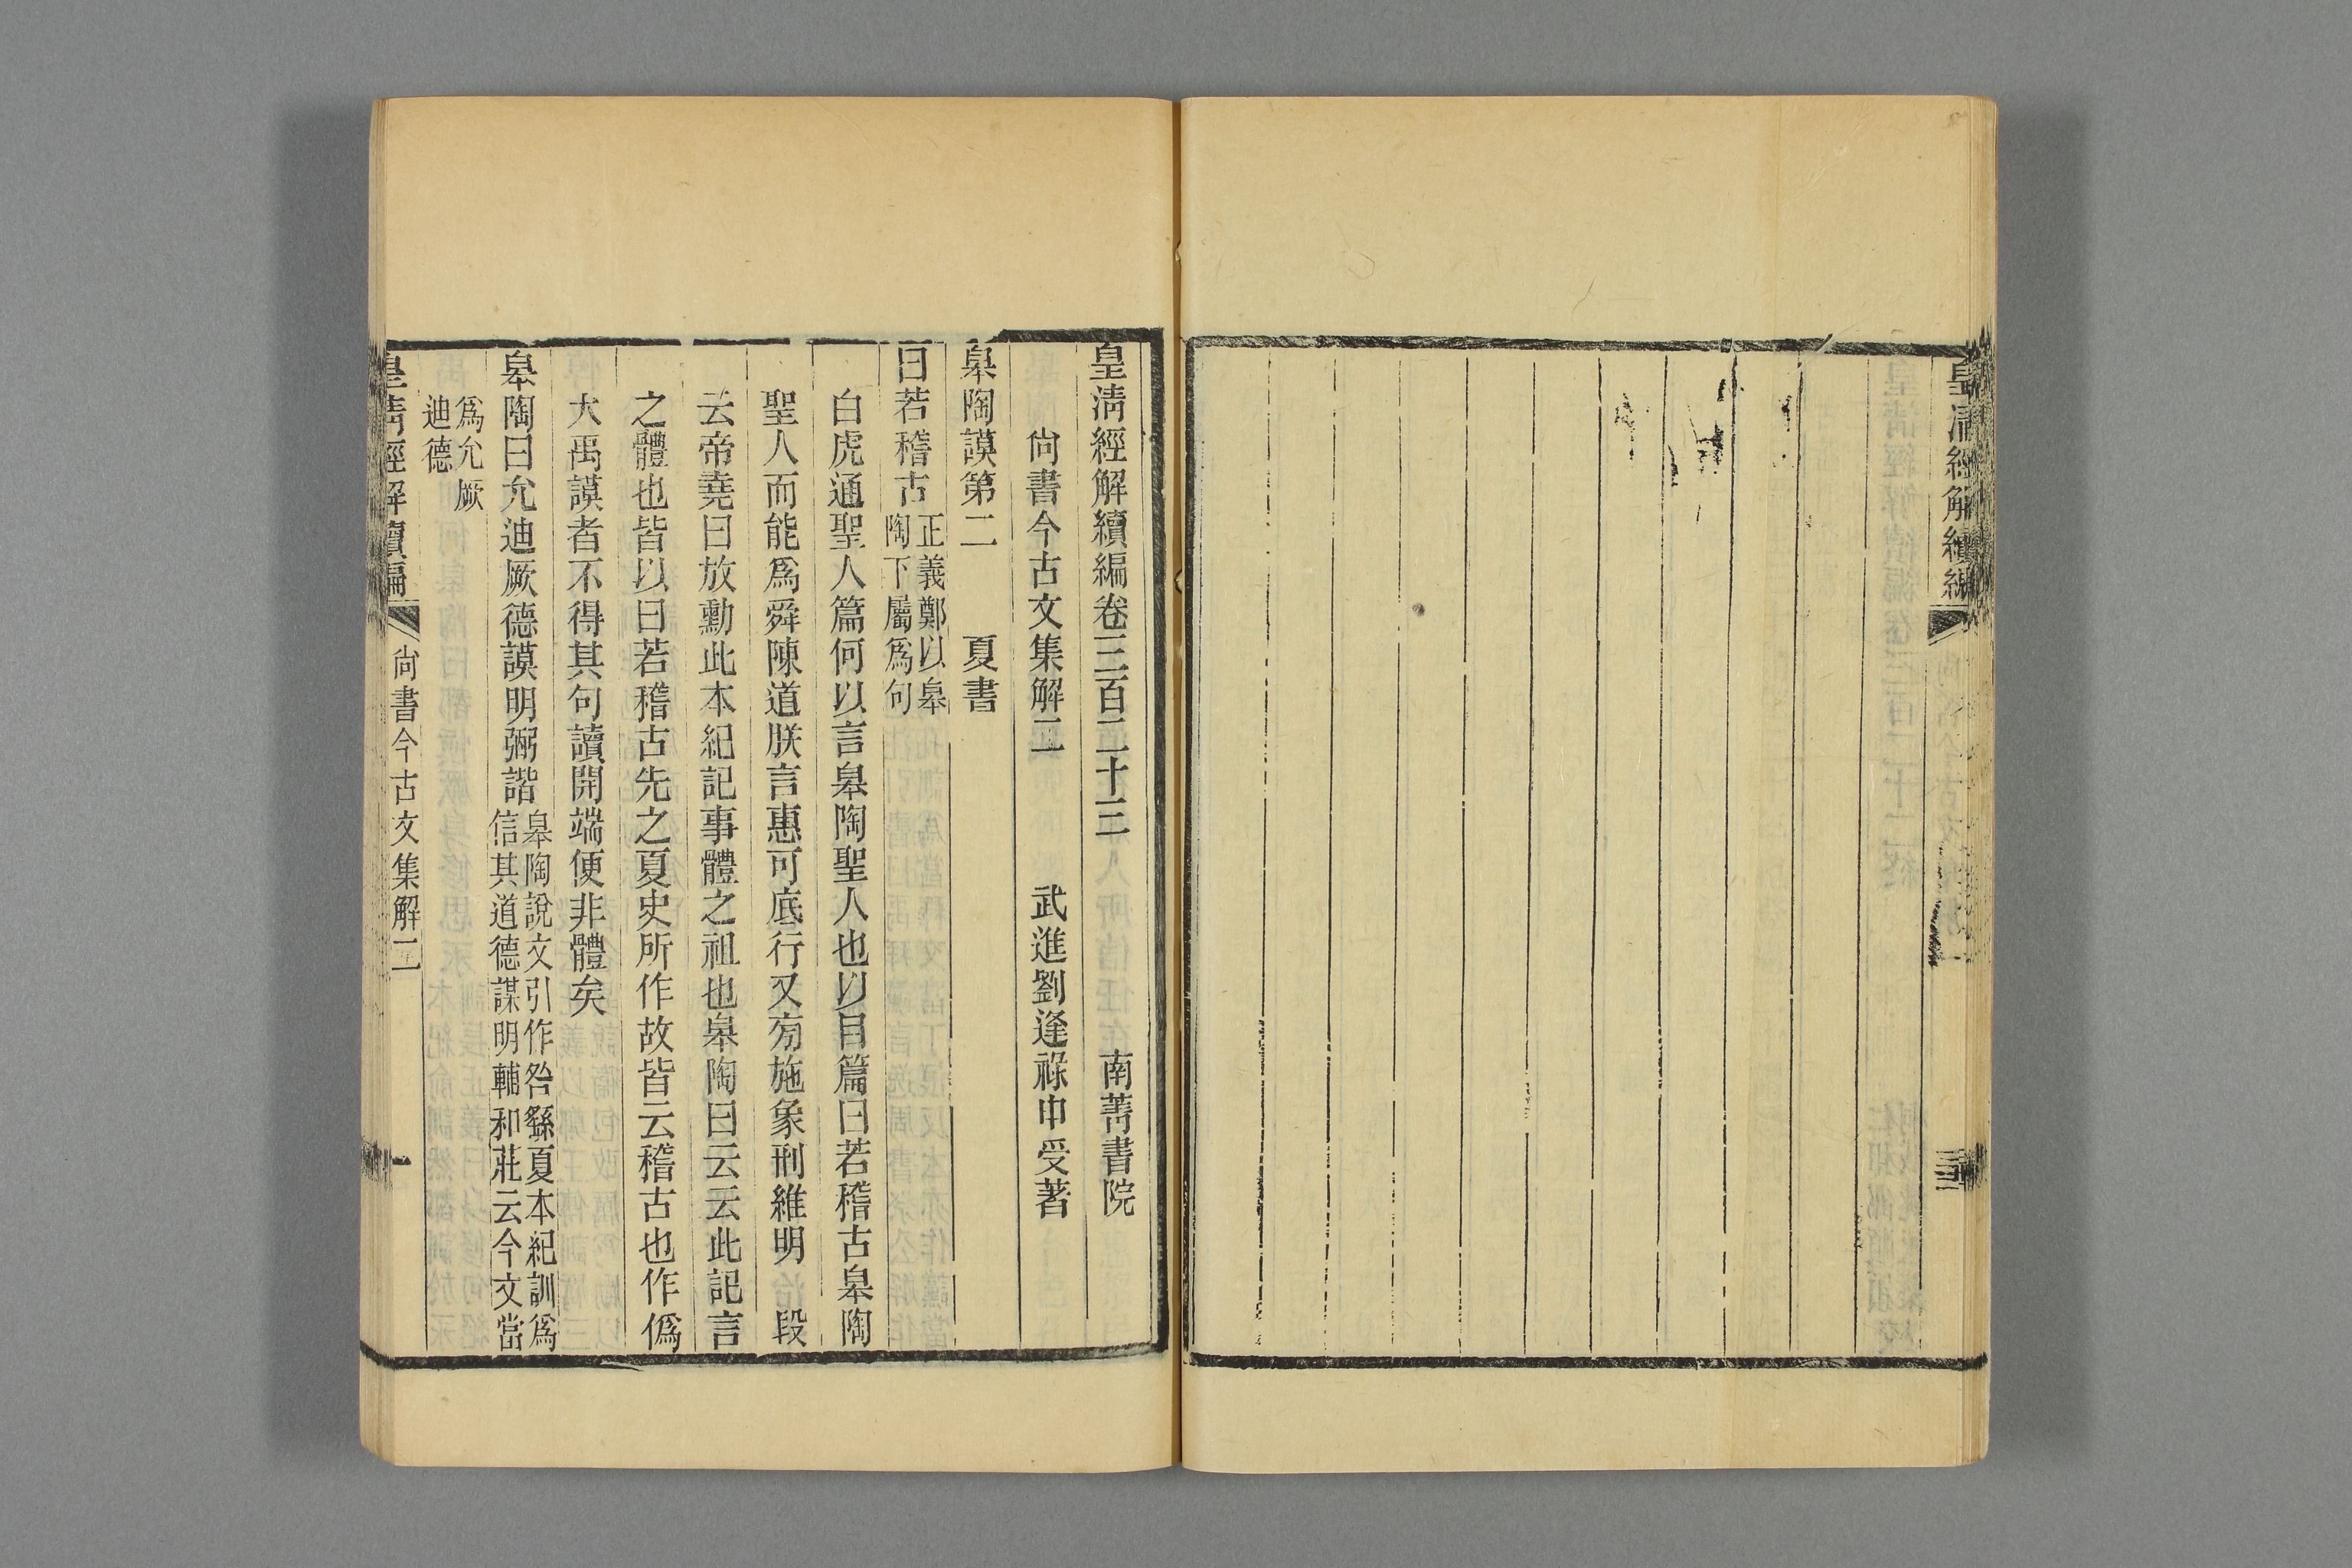 皇清經解續編
皇清經解續編卷三百二十三 南菁書院
尙書今古文集解二 武進劉逢祿申受著
皋陶謨第二 夏書
曰若稽古 正義鄭以皋
陶下屬爲句
白虎通聖人篇何以言皋陶聖人也以目篇曰若稽古皋陶
聖人而能爲舜陳道朕言惠可厎行又旁施象刑維明 段
云帝堯曰放勳此本紀記事體之祖也皋陶曰云云此記言
之體也皆以曰若稽古先之夏史所作故皆云稽古也作僞
大禹謨者不得其句讀開端便非體矣
皋陶曰允迪厥德謨明弼諧 皋陶說文引作咎繇夏本紀訓爲
信其道德謀明輔和莊云今文當
爲允厥
迪德
皇清經解續編 尙書今古文集解二 一